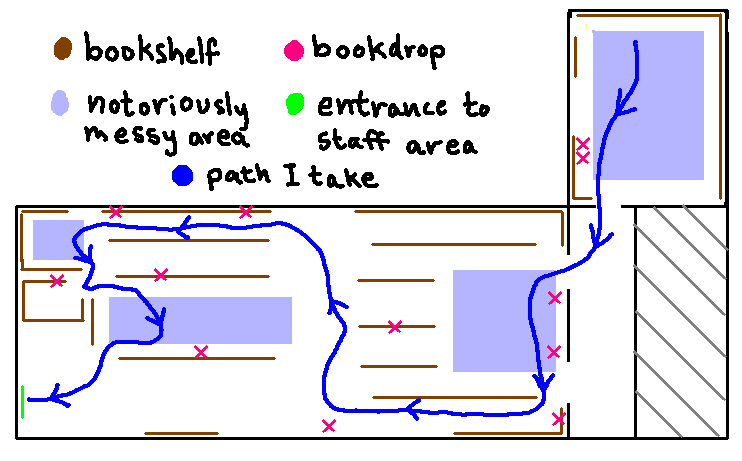 bookshelf
bookdrop
notoriously
messy area
entrance to
staff area
path I take